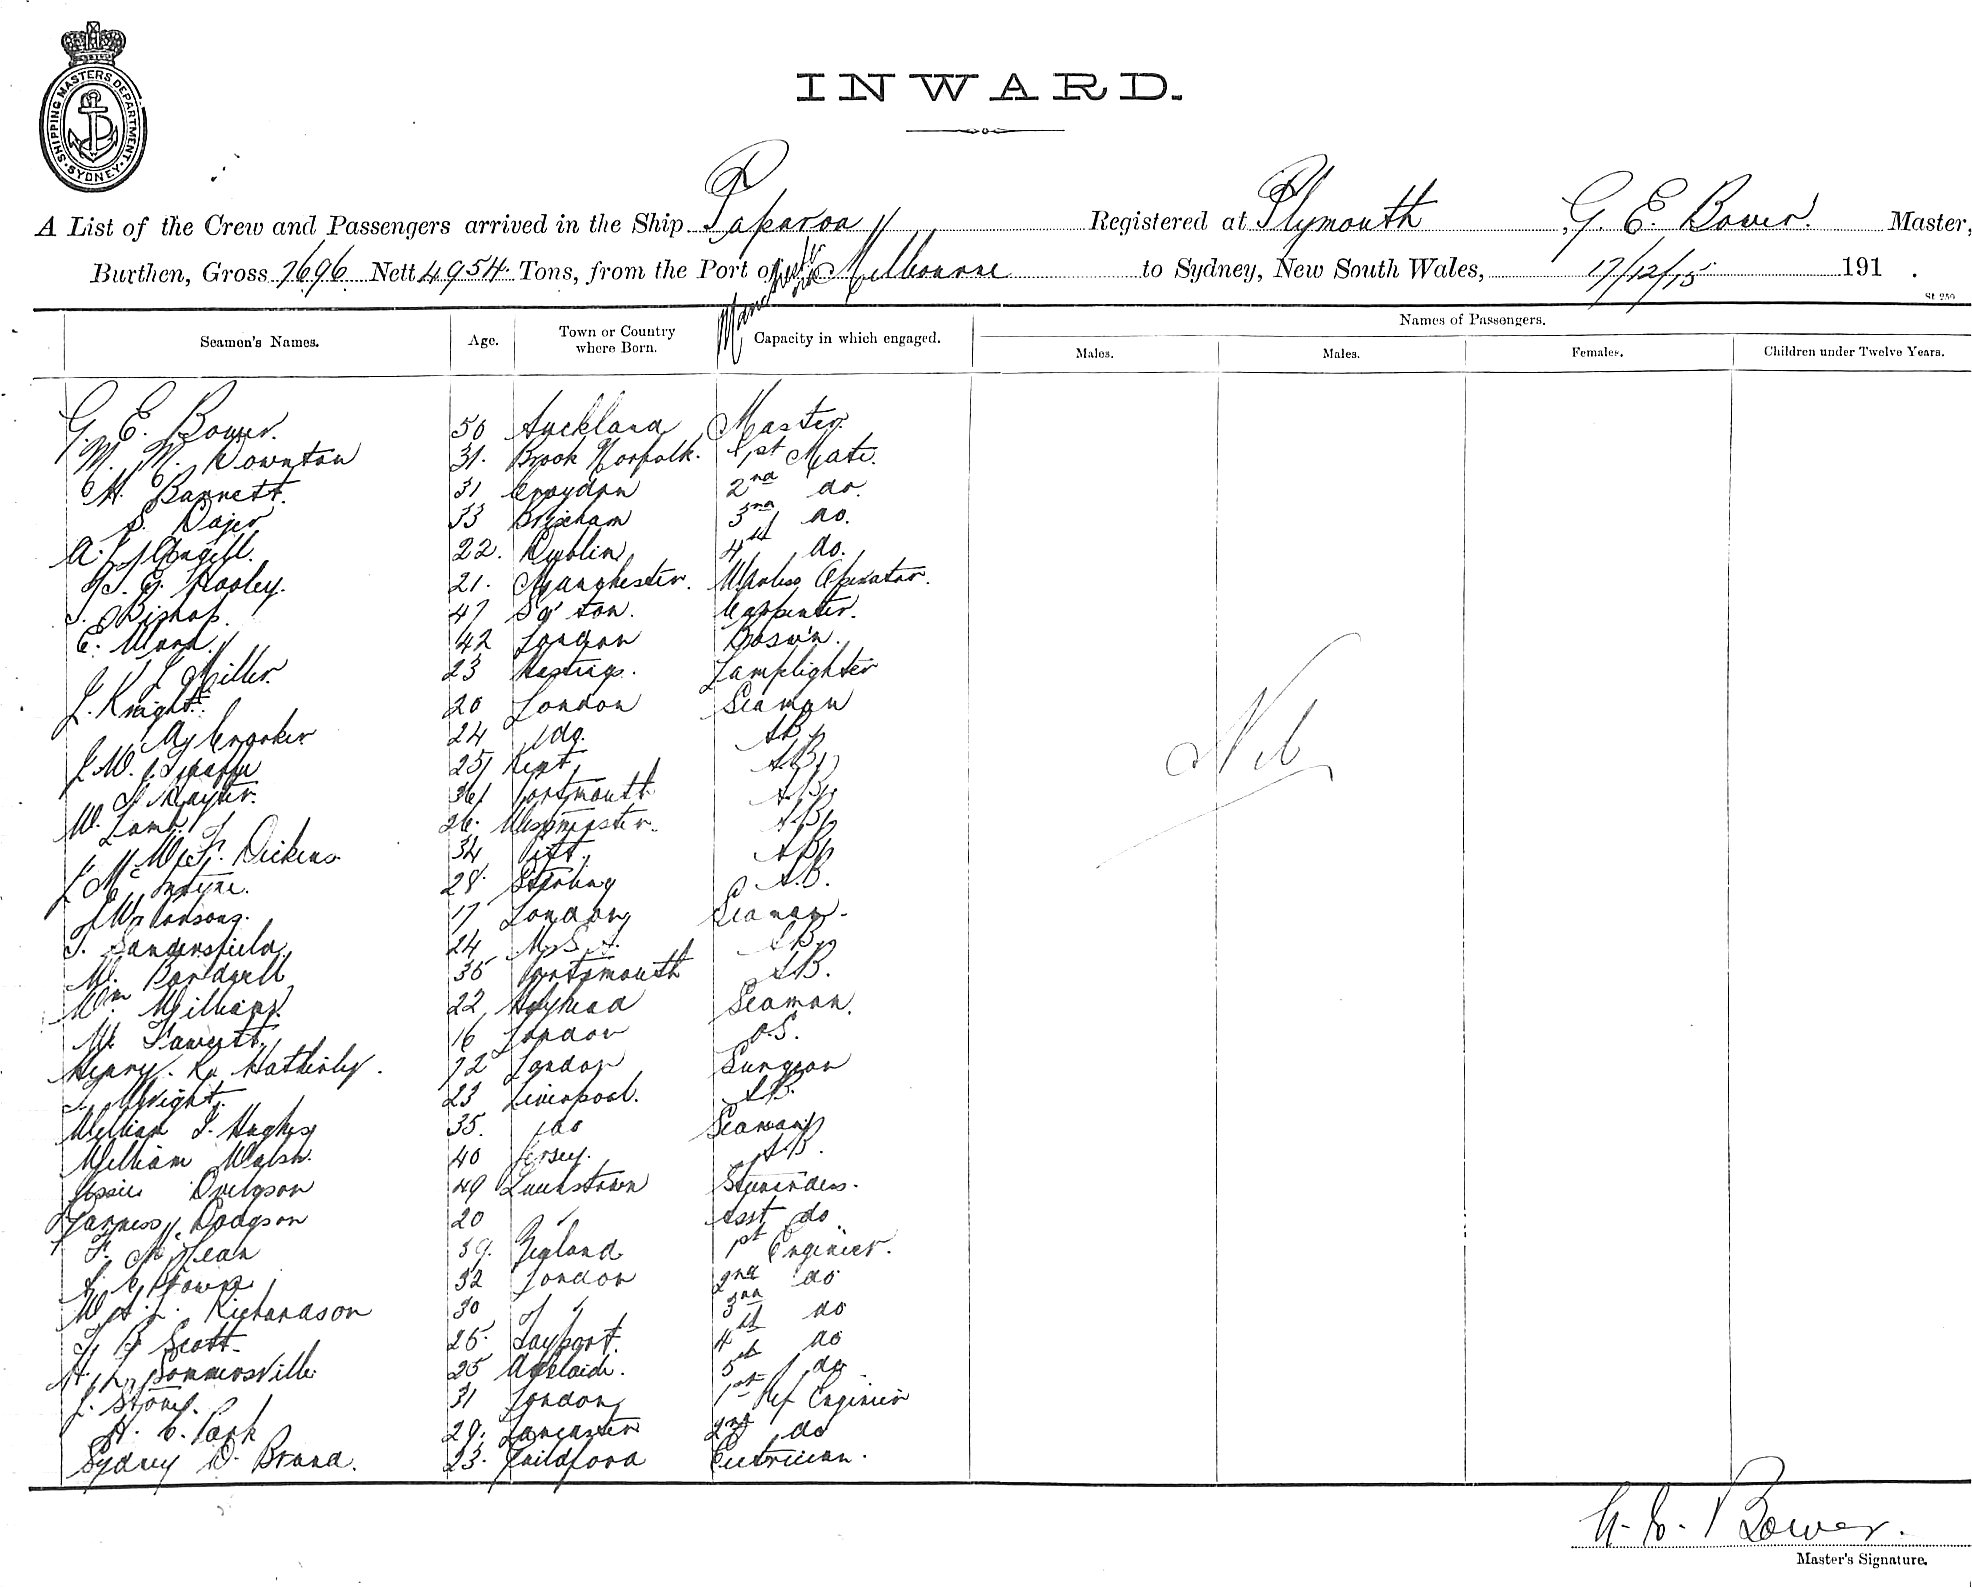 SHIPPING MASTERS DEPARTMENT. SYDNEY
INWARD.
A List of the Crew and Passengers arrived in the Ship Paparoa Registered at Plymouth G. E. Bower. Master,
Burthen, Gross 7696 Nett 4954 Tons, from the Port of Manchester via Melbourne to Sydney, New South Wales, 17/12/15 191 .
St 259
Seamen's Names. Age. Town or Country where Born. Capacity in which engaged. Names of Passengers.
Males. Males. Females. Children under Twelve Years.
G. E. Bower. 50 Auckland Master.
M. M. Downton 31. Brook Norfolk. 1st Mate.
H. Barnett. 31 Croydon 2nd do.
S. 33 Brixham 3rd do.
A. 22. Dublin 4th do.
Rooley. 21. Manchester. Wireless Operator.
T. Bishop. 47 Carpenter.
E. Ward. 42 London Bos'n.
J. Miller. 23 Hastings. Lamplighter
J. Knight. 20 London Seaman
A. Crooker 24 do. AB
J. W. 25 Kent AB
36 Portsmouth AB
W. Lamb 26. Westminster. AB
W. F. Dickens 34 AB
J. McIntyre. 28 Stirling A.B.
17 London Seaman.
T. Sandersfield. 24 U.S.A. AB
W. Bardwell 35 Portsmouth AB.
Wm Williams. 22 Holyhead Seaman.
W. Fawcett. 16 London O.S.
Henry. R. Hatherly. 72 London Surgeon
T. Wright. 23 Liverpool. AB.
William J. Hughes 35. do Seaman
William Walsh. 40 Jersey. AB.
Jessie 49 Queenstown Stewardess.
Dodgson 20 " Asst do
F. McLean 39. England 1st Engineer.
32 London 2nd do
W. A. J. Richardson 30 " 3rd do
T. B. Scott 25. Tayport. 4th do
A. L. Sommersville 25 Adelaide. 5th do
J. Storey. 31 London 1st Ref Engineer
A. C. Park 29. Lancaster 2nd do
Sydney D. Brand. 23. Guildford Electrician.
Nil
G. E. Bower.
Master's Signature.